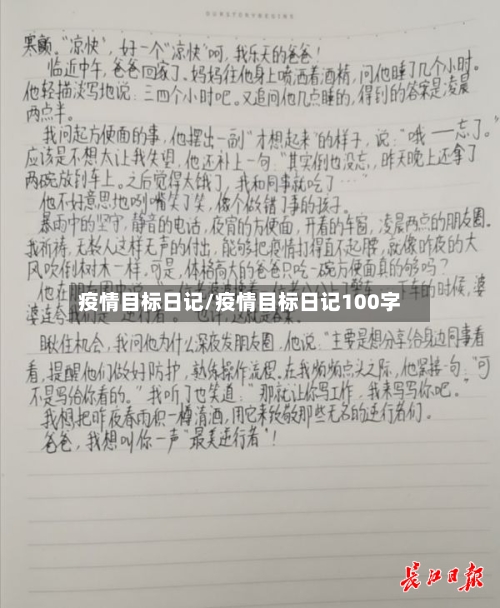 寒颤。“凉快”，好一个“凉快”呵，我乐天的爸爸！
临近中午，爸爸回家了。妈妈往他身上喷洒着酒精，问他睡了几个小时。
他轻描淡写地说：三四个小时吧。又追问他几点睡的，得到的答案是凌晨
两点半。
我问起方便面的事，他摆出一副“才想起来”的样子，说：“哦——忘了。”
应该是不想太让我失望，他还补上一句：“其实倒也没忘，昨天晚上还拿了
两碗放到车上。之后觉得太饿了，我和同事就吃了……”
他不好意思地咧嘴笑了笑，像个做错了事的孩子。
暴雨中的坚守，静音的电话，夜宵的方便面，开着的车窗，凌晨两点的朋友圈。
我祈祷，无数人这样无声的付出，能够把疫情打得直不起腰，就像昨夜的大
风吹倒树木一样，可是，体格高大的爸爸只吃一碗方便面真的够吗？
他在朋友圈中说：“一位老
下车的时候，婆
婆连
疫情目标日记/疫情目标日记100字
瞅住机会，我问他为什么深夜发朋友圈，他说：“主要是想分享给身边同事看
看，提醒他们做好防护，熟练操作流程。在我频频点头之际，他坚接一句：“可
不是写给你看的。”我听了也笑道：“那就让你写工作，我来写写你吧。”
我想把昨夜春雨积一樽清酒，用它来致敬那些无名的逆行者们。
爸爸，我想叫你一声“最美逆行者”！
长江日报